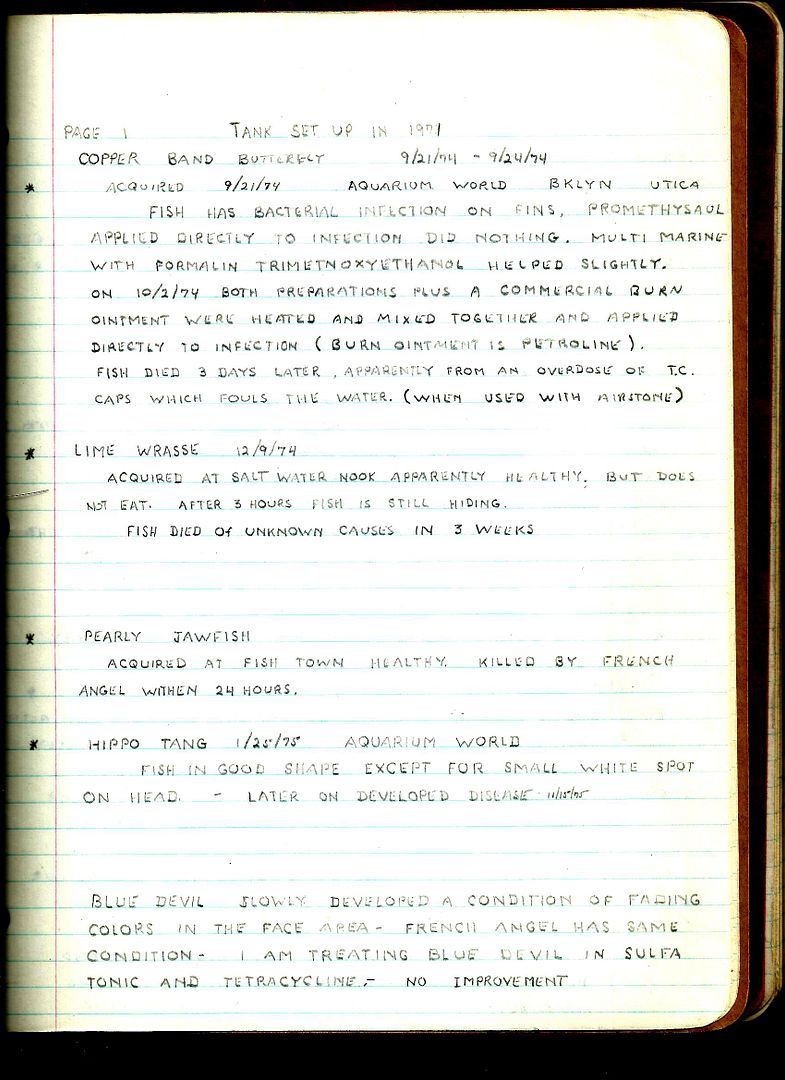 PAGE 1 TANK SET UP IN 1971
COPPER BAND BUTTERFLY 9/21/74 - 9/24/74
* ACQUIRED 9/21/74 AQUARIUM WORLD BKLYN UTICA
FISH HAS BACTERIAL INFECTION ON FINS, PROMETHYSAUL
APPLIED DIRECTLY TO INFECTION DID NOTHING. MULTI MARINE
WITH FORMALIN TRIMETNOXYETHANOL HELPED SLIGHTLY.
ON 10/2/74 BOTH PREPARATIONS PLUS A COMMERCIAL BURN
OINTMENT WERE HEATED AND MIXED TOGETHER AND APPLIED
DIRECTLY TO INFECTION (BURN OINTMENT IS PETROLINE).
FISH DIED 3 DAYS LATER, APPARENTLY FROM AN OVERDOSE OF T.C.
CAPS WHICH FOULS THE WATER. (WHEN USED WITH AIRSTONE)
* LIME WRASSE 12/9/74
ACQUIRED AT SALT WATER NOOK APPARENTLY HEALTHY. BUT DOES
NOT EAT. AFTER 3 HOURS FISH IS STILL HIDING.
FISH DIED OF UNKNOWN CAUSES IN 3 WEEKS
* PEARLY JAWFISH
ACQUIRED AT FISH TOWN HEALTHY. KILLED BY FRENCH
ANGEL WITHEN 24 HOURS.
* HIPPO TANG 1/25/75 AQUARIUM WORLD
FISH IN GOOD SHAPE EXCEPT FOR SMALL WHITE SPOT
ON HEAD. - LATER ON DEVELOPED DISEASE 11/15/75
BLUE DEVIL SLOWLY DEVELOPED A CONDITION OF FADING
COLORS IN THE FACE AREA - FRENCH ANGEL HAS SAME
CONDITION - I AM TREATING BLUE DEVIL IN SULFA
TONIC AND TETRACYCLINE - NO IMPROVEMENT